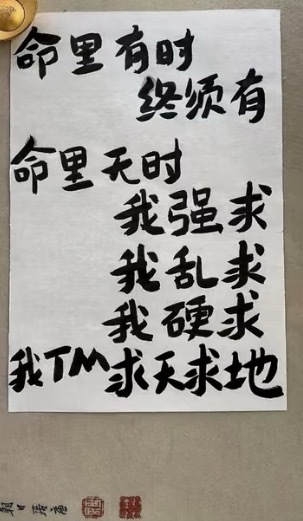 命里有时
终须有
命里无时
我强求
我乱求
我硬求
我TM求天求地